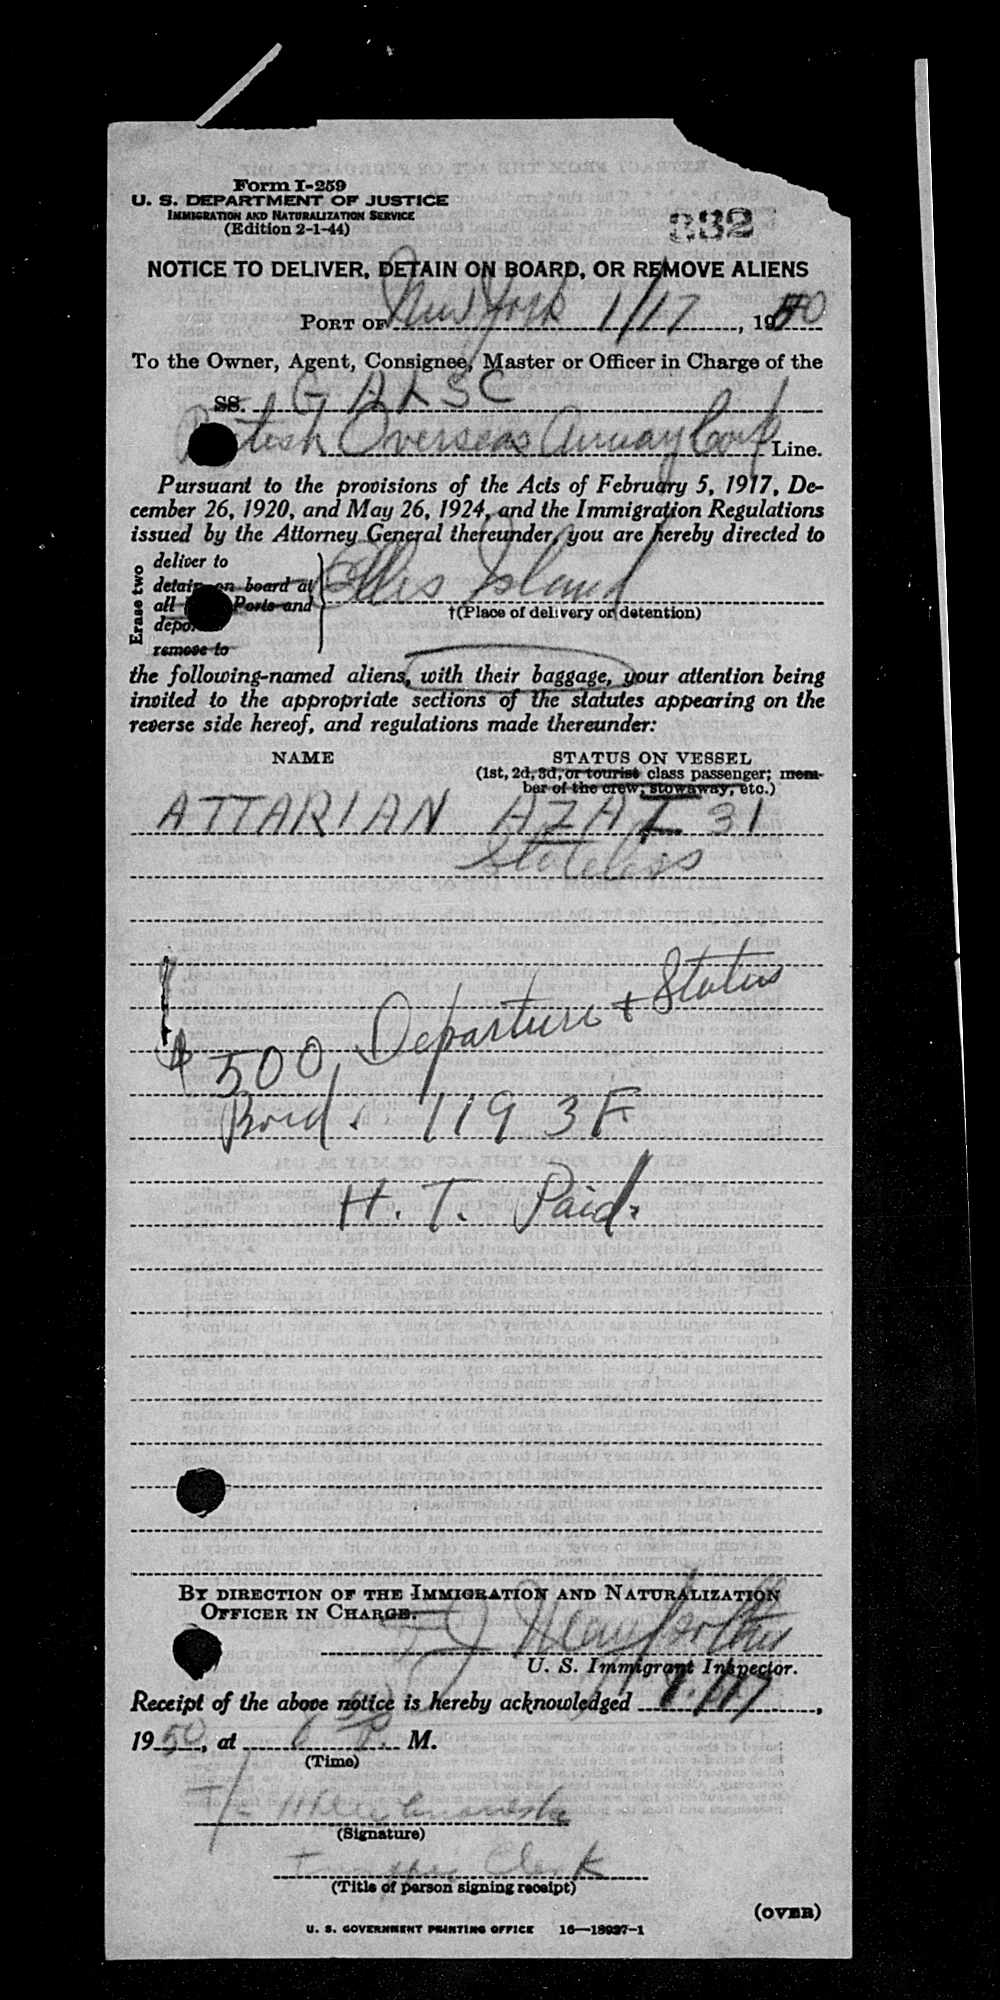 Form I-259
U. S. DEPARTMENT OF JUSTICE
IMMIGRATION AND NATURALIZATION SERVICE
(Edition 2-1-44)
332
NOTICE TO DELIVER, DETAIN ON BOARD, OR REMOVE ALIENS
PORT OF New York 1/17, 1950
To the Owner, Agent, Consignee, Master or Officer in Charge of the
SS. G ALSC
British Overseas Airway Corp Line.
Pursuant to the provisions of the Acts of February 5, 1917, De-
cember 26, 1920, and May 26, 1924, and the Immigration Regulations
issued by the Attorney General thereunder, you are hereby directed to
Erase two
deliver to
detain on board at
all Ports and
remove to
Ellis Island
†(Place of delivery or detention)
the following-named aliens, with their baggage, your attention being
invited to the appropriate sections of the statutes appearing on the
reverse side hereof, and regulations made thereunder:
NAME STATUS ON VESSEL
(1st, 2d, 3d, or tourist class passenger; mem-
ber of the crew; stowaway, etc.)
ATTARIAN AZAT 31
Stateless
Departure + Status
$500
Bond. 1193F
H. T. Paid.
BY DIRECTION OF THE IMMIGRATION AND NATURALIZATION
OFFICER IN CHARGE.
U. S. Immigrant Inspector.
Receipt of the above notice is hereby acknowledged 1/17,
1950, at 6 50 P. M.
(Time)
(Signature)
Clerk
(Title of person signing receipt)
(OVER)
U. S. GOVERNMENT PRINTING OFFICE 16—18927-1